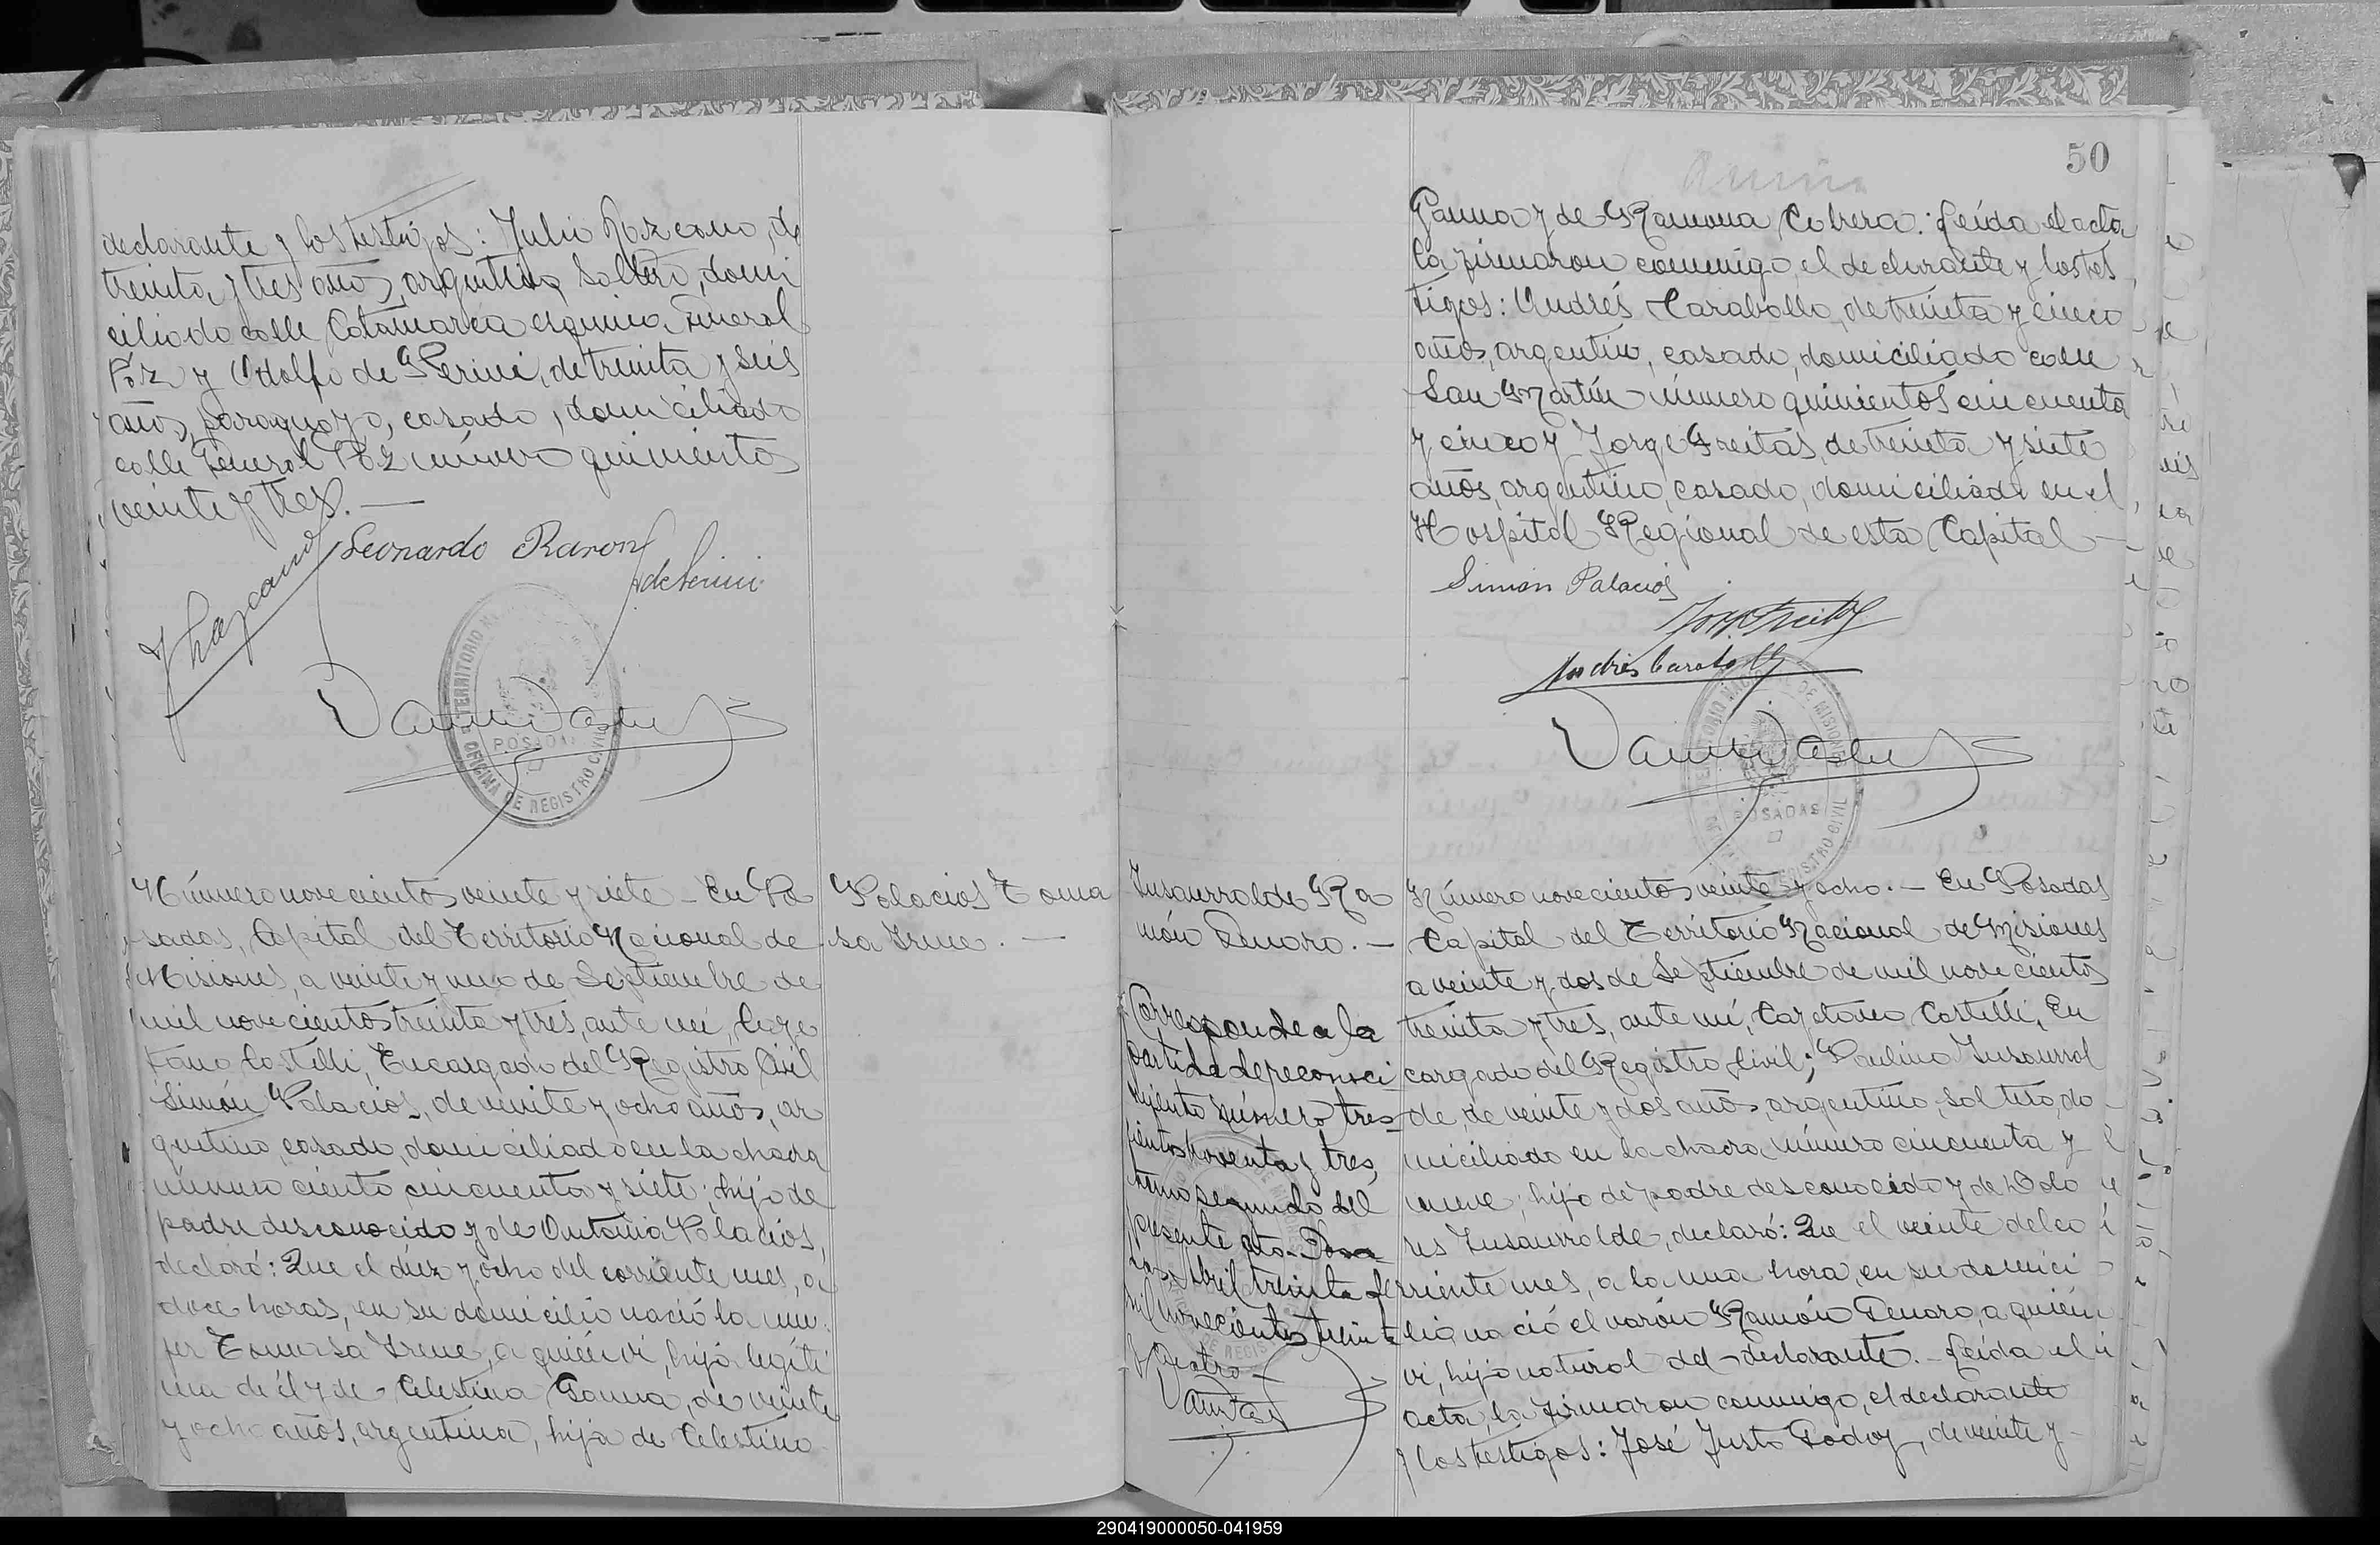 declarante y los testigos: Julio Lezcano, de
treinta y tres años, argentino, soltero, domi
ciliado calle Catamarca esquina General
Paz y Adolfo de Perini, de treinta y seis
años, paraguayo, casado, domiciliado
calle General Paz número quinientos
veinte y tres. —
J Lezcano
Leonardo Raron
A de Perini
TERRITORIO
POSADAS
OFICINA DE REGISTRO CIVIL
Número novecientos veinte y siete - En Po
sadas, Capital del Territorio Nacional de
Misiones, a veinte y uno de Septiembre de
mil novecientos treinta y tres, ante mí, Caye
tano Castelli, Encargado del Registro Civil
Simón Palacios, de veinte y ocho años, ar
gentino, casado, domiciliado en la chacra
número ciento cincuenta y siete; hijo de
padre desconocido y de Antonia Palacios,
declaró: Que el diez y ocho del corriente mes, a
doce horas, en su domicilio nació la mu
jer Tomasa Irene, a quién ví, hija legíti
ma de él y de Celestina Gauna, de veinte
y ocho años, argentina, hija de Celestino
Palacios Toma
sa Irene. —
50
Gauna y de Ramona Cabrera: Leída el acta
la firmaron conmigo, el declarante y los tes
tigos: Andrés Caraballo, de treinta y cinco
años, argentino, casado, domiciliado calle
San Martín número quinientos cincuenta
y cinco y Jorge Freitas, de treinta y siete
años, argentino, casado, domiciliado en el
Hospital Regional de esta Capital —
Simón Palacios
Jorge Freitas
Andrés Caraballo
TERRITORIO NACIONAL DE MISIONES
POSADAS
REGISTRO CIVIL
Insaurralde Ra
món Genaro. —
Corresponde a la
partida de reconoci
miento número tres
cientos noventa y tres,
tomo segundo del
presente año. Posa
das, Abril treinta de
mil novecientos treinta
y cuatro -
Número novecientos veinte y ocho. — En Posadas
Capital del Territorio Nacional de Misiones
a veinte y dos de Septiembre de mil novecientos
treinta y tres, ante mí, Cayetano Castelli, En
cargado del Registro Civil; Paulino Insaurral
de, de veinte y dos años, argentino, soltero, do
miciliado en la chacra número cincuenta y
nueve; hijo de padre desconocido y de Dolo
res Insaurralde, declaró: Que el veinte del co
rriente mes, a la una hora, en su domici
lio nació el varón Ramón Genaro, a quién
ví, hijo natural del declarante. - Leída el
acta, la firmaron conmigo, el declarante
y los testigos: José Justo Godoy, de veinte y
290419000050-041959